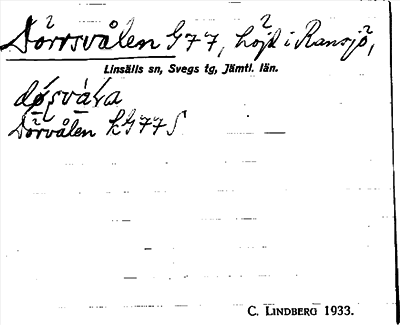 Dörrsvålen G77, höjd i Ransjö,
Linsälls sn, Svegs tg, Jämtl. län.
Dörvålen kG77S
C. LINDBERG 1933.